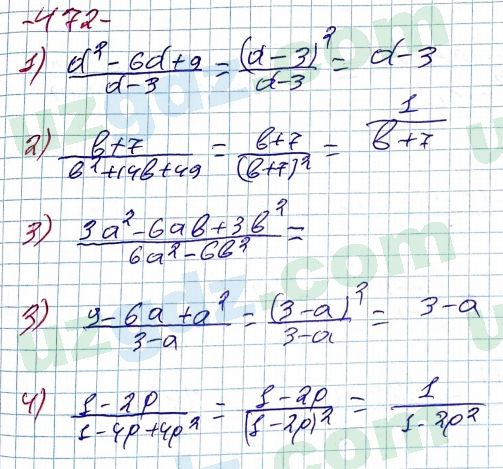 -472-
1) (d² - 6d + 9)/(d - 3) = (d - 3)²/(d - 3) = d - 3
2) (b + 7)/(b² + 14b + 49) = (b + 7)/(b + 7)² = 1/(b + 7)
3) (3a² - 6ab + 3b²)/(6a² - 6b²) =
3) (9 - 6a + a²)/(3 - a) = (3 - a)²/(3 - a) = 3 - a
4) (1 - 2p)/(1 - 4p + 4p²) = (1 - 2p)/(1 - 2p)² = 1/(1 - 2p²)